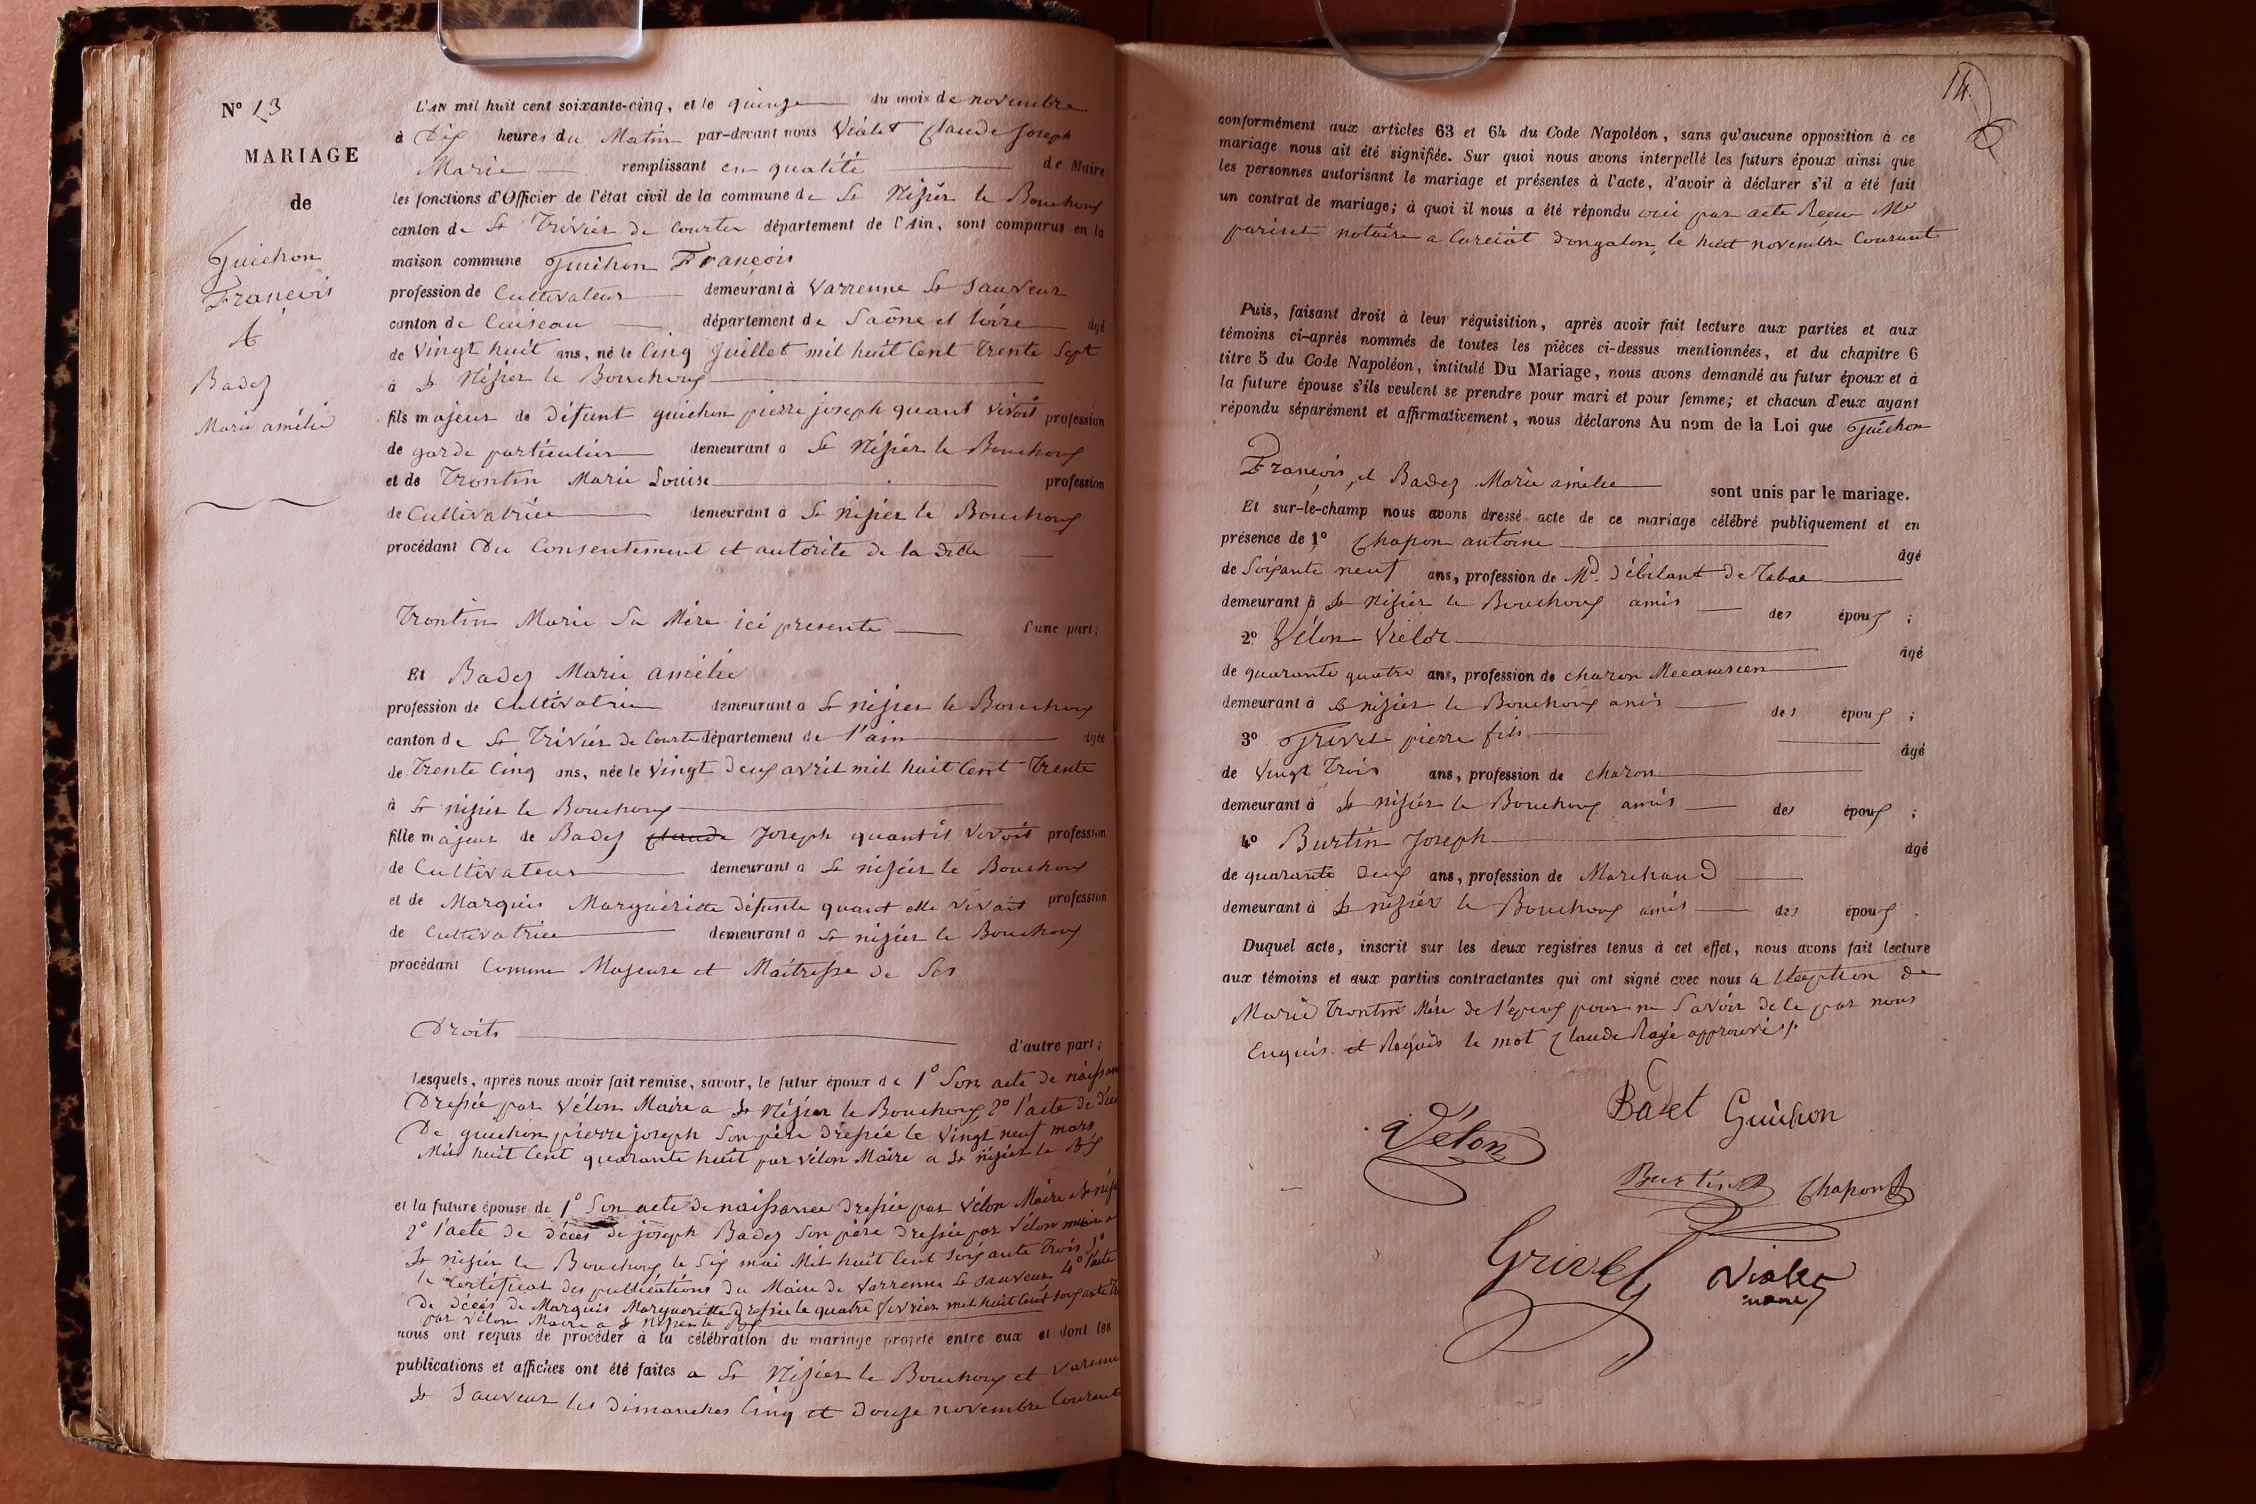 N° 13
MARIAGE
de
Guichon
François
&
Badez
Marie amélie
L'AN mil huit cent soixante-cinq, et le quinze du mois de novembre
à Dix heures du Matin par-devant nous Violet Claude Joseph
Marie remplissant en qualité de Maire
les fonctions d'Officier de l'état civil de la commune de St Nizier le Bouchoux
canton de St Trivier de Courtes département de l'Ain, sont comparus en la
maison commune Guichon François
profession de Cultivateur demeurant à Varrenne St Sauveur
canton de Cuiseau département de Saône et Loire âgé
de Vingt huit ans, né le Cinq Juillet mil huit Cent Trente Sept
à St Nizier le Bouchoux
fils majeur de Défunt guichon pierre joseph quant vivoit profession
de garde particulier demeurant à St Nizier le Bouchoux
et de Trontin Marie Louise profession
de Cultivatrice demeurant à St nizier le Bouchoux
procédant Du Consentement et autorité de la ditte
Trontin Marie Sa Mère ici presente d'une part;
Et Badez Marie amélie
profession de Cultivatrice demeurant à St nizier le Bouchoux
canton de St Trivier de Courte département de l'ain âgée
de Trente Cinq ans, née le Vingt deux avril mil huit Cent Trente
à St nizier le Bouchoux
fille majeur de Badez Claude Joseph quant il vivoit profession
de Cultivateur demeurant à St nizier le Bouchoux
et de Marquis Marguéritte défunte quant elle vivait profession
de Cultivatrice demeurant à St nizier le Bouchoux
procédant Comme Majeure et Maitresse de Ses
Droits d'autre part;
Lesquels, après nous avoir fait remise, savoir, le futur époux de 1° Son acte de naissan
Dressée par Vélon Maire a St Nizier le Bouchoux, 2° l'acte de déc
De guichon pierre joseph Son père Dressée le Vingt neuf mars
Mil huit Cent quarante huit par Vélon Maire a St nizier le Bx
et la future épouse de 1° Son acte de naissance dressée par Vélon Maire a St nizi
2° l'acte de décès de joseph Badez Son père dressée par Vélon maire a
St nizier le Bouchoux le Six mai Mil huit Cent Soixante Trois 3°
le Certificat des publications du Maire de Varrenne St Sauveur 4° l'acte
De décès de Marquis Marguéritte Dressée le quatre fevrier mil huit Cent Soixante
par Vélon Maire a St Nizier le Bx
nous ont requis de procéder à la célébration du mariage projeté entre eux et dont les
publications et affiches ont été faites a St Nizier le Bouchoux et Varenne
St Sauveur les dimanches Cinq et Douze novembre Courant
14
conformément aux articles 63 et 64 du Code Napoléon, sans qu'aucune opposition à ce
mariage nous ait été signifiée. Sur quoi nous avons interpellé les futurs époux ainsi que
les personnes autorisant le mariage et présentes à l'acte, d'avoir à déclarer s'il a été fait
un contrat de mariage; à quoi il nous a été répondu oui par acte Reçu Me
pariset notaire a Curciat Dongalon, le huit novembre Courant
Puis, faisant droit à leur réquisition, après avoir fait lecture aux parties et aux
témoins ci-après nommés de toutes les pièces ci-dessus mentionnées, et du chapitre 6
titre 5 du Code Napoléon, intitulé Du Mariage, nous avons demandé au futur époux et à
la future épouse s'ils veulent se prendre pour mari et pour femme; et chacun d'eux ayant
répondu séparément et affirmativement, nous déclarons Au nom de la Loi que Guichon
François, et Badez Marie amélie sont unis par le mariage.
Et sur-le-champ nous avons dressé acte de ce mariage célébré publiquement et en
présence de 1° Chapon antoine âgé
de Soixante neuf ans, profession de Md. débitant de Tabac
demeurant à St Nizier le Bouchoux amis des époux ;
2° Vélon Victor âgé
de quarante quatre ans, profession de charon Mecanicien
demeurant à St nizier le Bouchoux amis des époux ;
3° Grivel pierre fils âgé
de Vingt Trois ans, profession de charon
demeurant à St nizier le Bouchoux amis des époux ;
4° Burtin Joseph âgé
de quarante Deux ans, profession de Marchand
demeurant à St nizier le Bouchoux amis des époux.
Duquel acte, inscrit sur les deux registres tenus à cet effet, nous avons fait lecture
aux témoins et aux parties contractantes qui ont signé avec nous a l'éxeption de
Marie Trontin Mère de l'époux pour ne Savoir de ce par nous
Enquis et Requis le mot Claude Rayé approuvé
Badet Guichon
Vélon
Burtin Chapon
Grivel Violet
maire